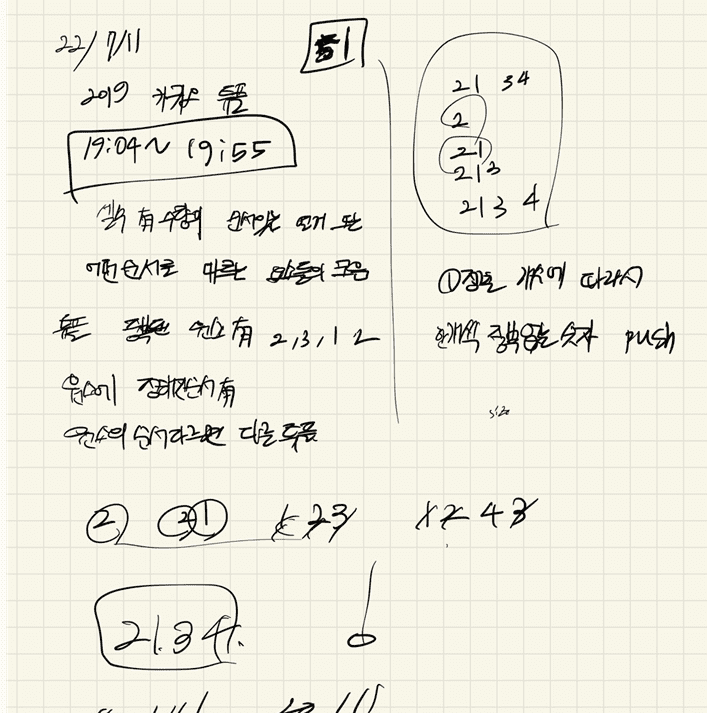 22/7/11
51
2019 카카오 튜플
19:04~ 19:55
셀수 有 수량의 순서있는 열거 또는
어떤순서로 따르는 요소들의 모음
튜플 중복된 원소 有 2, 3, 1 2
원소에 정해진순서 有
원소의 순서다르면 다른 튜플
② 2 1 23 1 2 4 3
2 1. 3 4.
21 34
2
21
213
213 4
① 집합 개수에 따라서
한개씩 중복없는 숫자 push
size